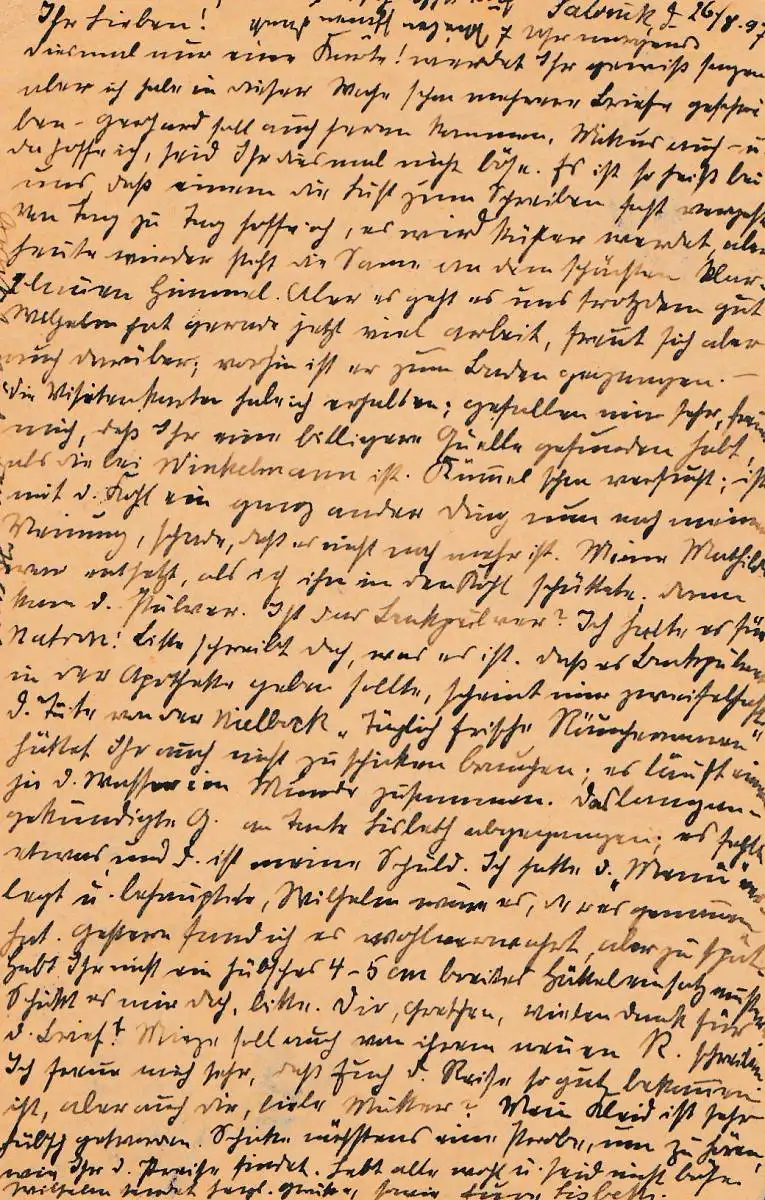 Salonik, d. 26/8.97
Ihr Lieben! 7 Uhr morgens
diesmal nur eine Karte! werdet Ihr gewiß sagen
aber ich habe in dieser Woche schon mehrere Briefe geschrie
ben - Gerhard soll auch kommen, auch - u.
da hoffe ich, seid Ihr diesmal nicht böse. Es ist so heiß bei
uns, daß einem die Lust zum Schreiben fast vergeht
Von Tag zu Tag hoffe ich, es wird kühler werden, aber
heute wieder steht die Sonne an dem schönsten klar-
blauen Himmel. Aber es geht es uns trotzdem gut
Wilhelm hat gerade jetzt viel Arbeit, freut sich aber
auch darüber; vorhin ist er zum Baden gegangen. -
Die Visitenkarten habe ich erhalten; gefallen mir sehr, freue
mich, daß Ihr eine billigere Quelle gefunden habt,
als die bei Winkelmann ist. Kümmel schon versucht; ist
mit d. Kohl ein ganz ander Ding nun nach meiner
Meinung, schade, daß es nicht noch mehr ist. Meine Mathilde
war entsetzt, als ich ihn in den Kohl schüttete. Dann
kam d. Pulver. Ist das Backpulver? Ich halte es für
Natron! Bitte schreibt doch, was es ist. Daß es Backpulver
in der Apotheke geben sollte, scheint mir zweifelhaft
D. Tüte von der Nielbock „Täglich frische
hättet Ihr auch nicht zu schicken brauchen; es läuft einem
ja d. Wasser im Munde zusammen. Das langan-
gekündigte G. an Tante Lisbeth abgegangen; es fehlt
etwas und d. ist meine Schuld. Ich hatte d. „Menu" ver-
legt u. behauptete, Wilhelm wäre es, der es genommen
hat. Gestern fand ich es wohlverwahrt, aber zu spät.
Habt Ihr nicht ein hübsches 4-5 cm breites
Schickt es mir doch, bitte. Dir, Gretchen, vielen Dank für
d. Brief! Mieze soll auch von ihrem neuen R. schreiben
Ich freue mich sehr, daß Euch d. Reise so gut bekommen
ist, aber auch dir, liebe Mutter? Mein Kleid ist sehr
hübsch geworden. Schicke nächstens eine Probe, um zu hören,
wie Ihr d. Preise findet. Lebt alle wohl u. seid nicht böse.
Wilhelm sendet herzl. Grüße, sowie Eure Lisbeth.